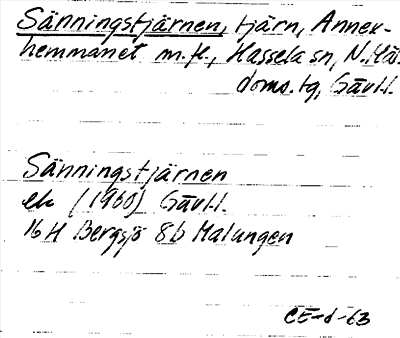 Sänningstjärnen, tjärn, Annex-
hemmanet m.fl., Hassela sn, N. Häl.
doms.tg, Gävl.l.
Sänningstjärnen
ek (1960) Gävl.l.
16 H Bergsjö 8b Malungen
CE-d-63